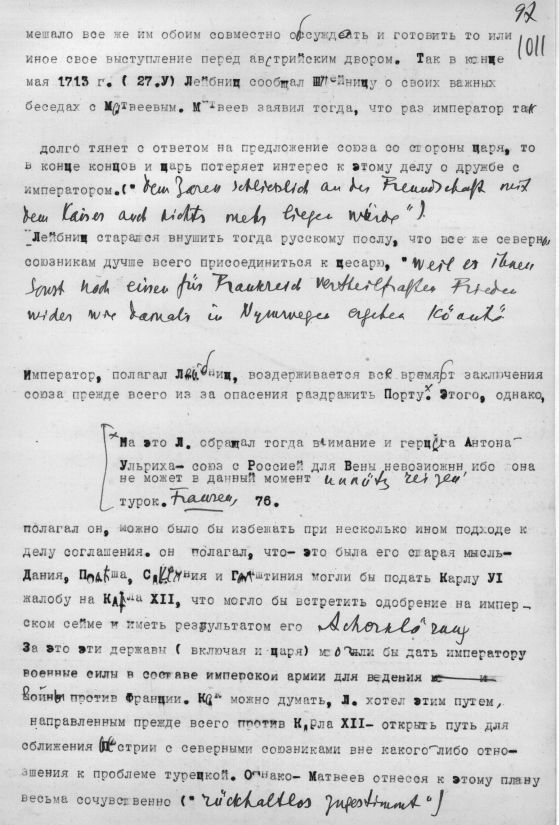 92
1011
мешало все же им обоим совместно обсуждать и готовить то или
иное свое выступление перед австрийским двором. Так в конце
мая 1713 г. ( 27.У) Лейбниц сообщал Шлейницу о своих важных
беседах с Матвеевым. Матвеев заявил тогда, что раз император так
долго тянет с ответом на предложение союза со стороны царя, то
в конце концов и царь потеряет интерес к этому делу о дружбе с
императором.(" dem Zaren schliesslich an der Freundschaft mit
dem Kaiser auch nichts mehr liegen würde").
Лейбниц старался внушить тогда русскому послу, что все же северным
союзникам дучше всего присоединиться к цесарю, "weil es ihnen
sonst noch einen für Frankreich vortheilhaften Frieden
wider wie damals in Nymwegen ergehen könnte"
Император, полагал Лейбниц, воздерживается все время от заключения
союза прежде всего из за опасения раздражить Порту.x Этого, однако,
x На это Л. обращал тогда внимание и герцога Антона
Ульриха- союз с Россией для Вены невозможнн ибо она
не может в данный момент unnötz reizen
турок. Franzen, 76.
полагал он, можно было бы избежать при несколько ином подходе к
делу соглашения. он полагал, что- это была его старая мысль-
Дания, Польша, Саксония и Голштиния могли бы подать Карлу УI
жалобу на Карла XII, что могло бы встретить одобрение на импер-
ском сейме и иметь результатом его Achterklärung
За это эти державы ( включая и царя) могли бы дать императору
военные силы в составе имперской армии для ведения
войны против Франции. Как можно думать, Л. хотел этим путем,
направленным прежде всего против Карла XII- открыть путь для
сближения Австрии с северными союзниками вне какого-либо отно-
шения к проблеме турецкой. Однако- Матвеев отнесся к этому плану
весьма сочувственно ("rückhaltlos zugestimmt")